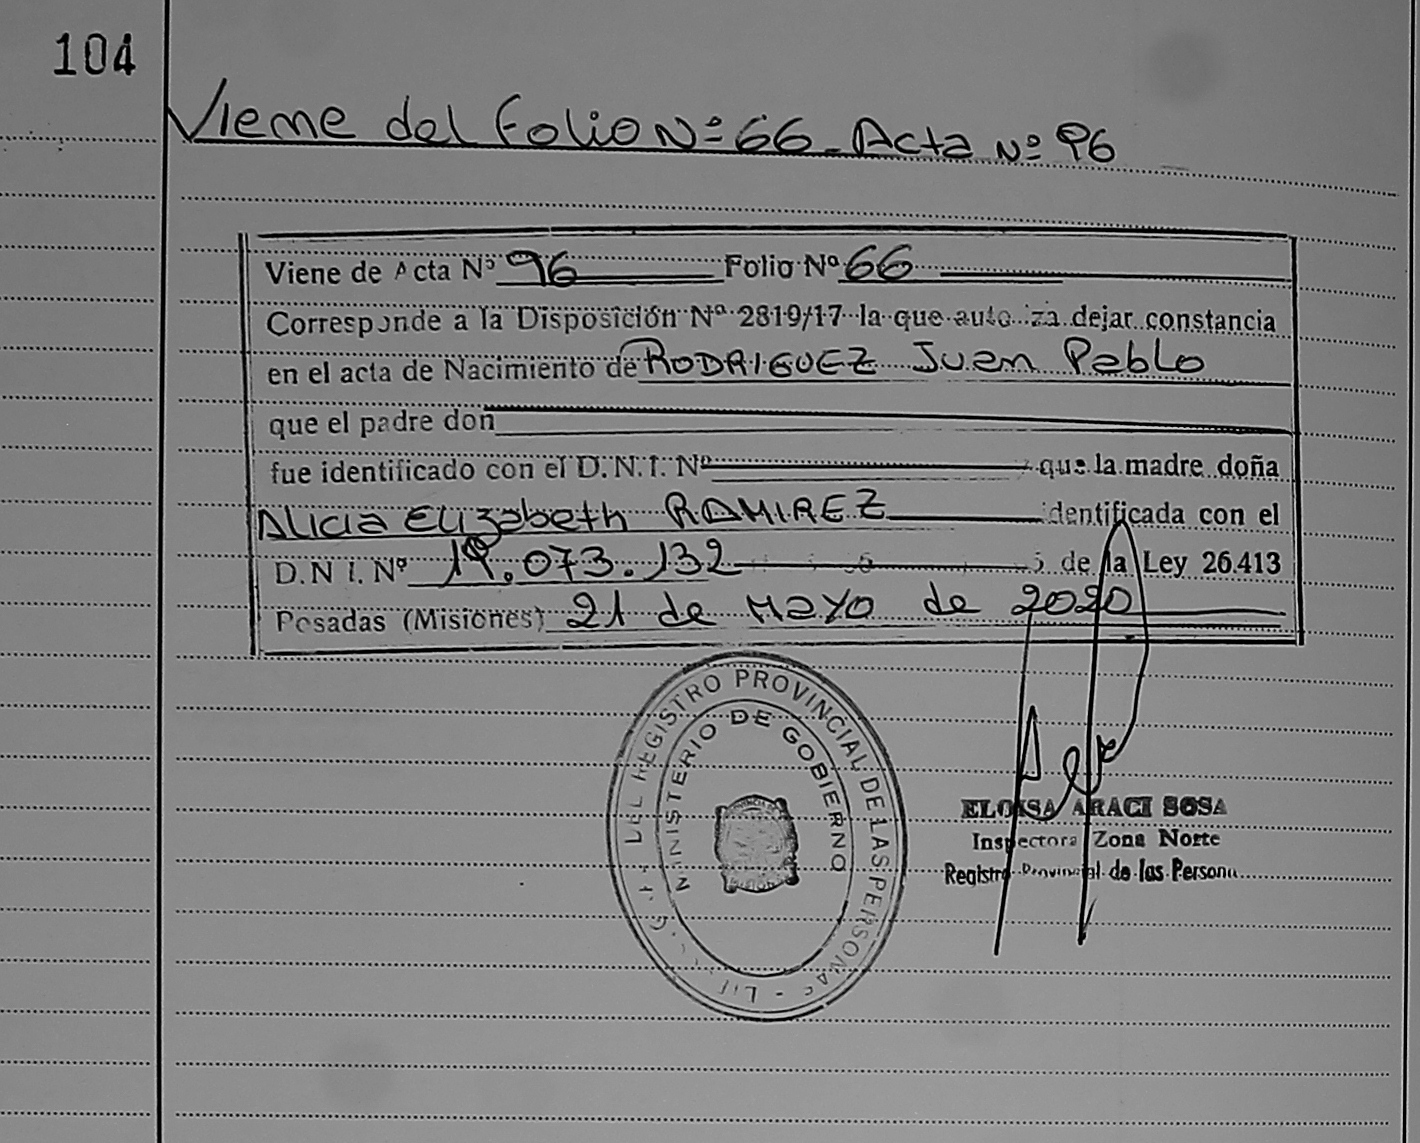 104
Viene del Folio Nº 66 - Acta Nº 96
Viene de Acta Nº 96 Folio Nº 66
Corresponde a la Disposición Nº 2819/17 la que autoriza dejar constancia
en el acta de Nacimiento de RODRIGUEZ Juan Pablo
que el padre don
fue identificado con el D.N.I. Nº que la madre doña
Alicia Elizabeth RAMIREZ identificada con el
D.N.I. Nº 19.073.132 de la Ley 26.413
Posadas (Misiones) 21 de Mayo de 2020
DEL REGISTRO PROVINCIAL DE LAS PERSONAS
MINISTERIO DE GOBIERNO
ELOISA ARACI SOSA
Inspectora Zona Norte
Registro Provincial de las Persona